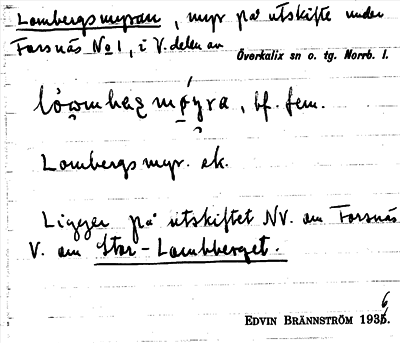 Lombergsmyran, myr på utskifte under
Forsnäs No 1, i V. delen av
Överkalix sn o. tg. Norrb. l.
bf. fem.
Lombergsmyr. ek.
Ligger på utskiftet NV. om Forsnäs
V. om Stor-Lombberget.
EDVIN BRÄNNSTRÖM 1936